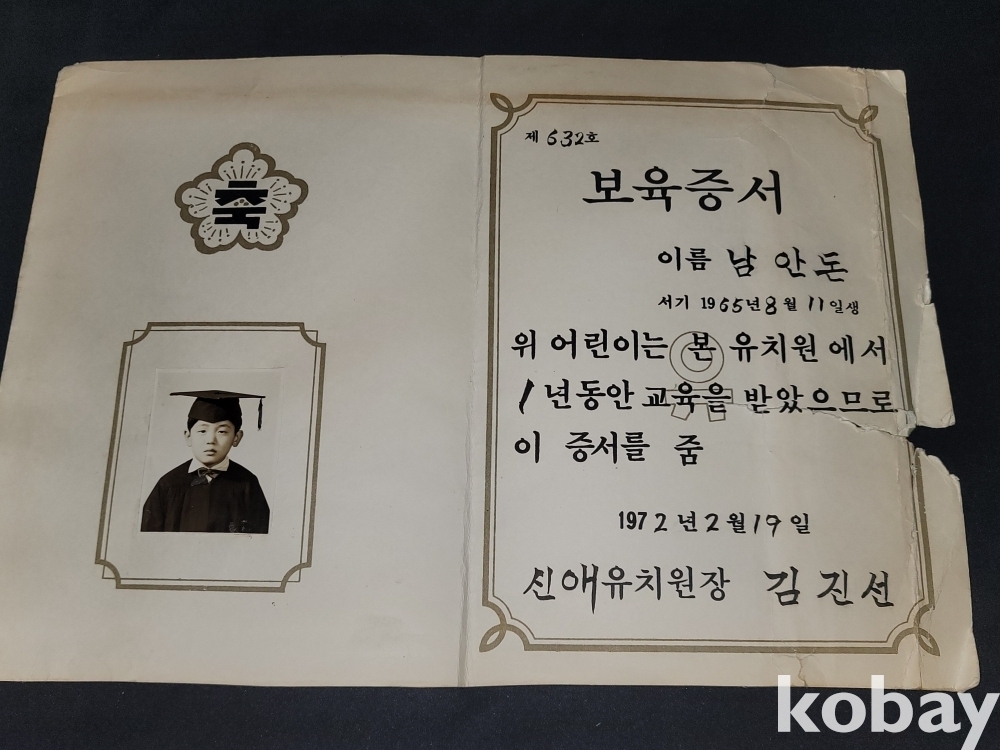 축
제 632호
보육증서
이름 남 안 돈
서기 1965년 8월 11일생
위 어린이는 본 유치원에서
1년동안 교육을 받았으므로
이 증서를 줌
1972년 2월 19일
신애유치원장 김진선
kobay